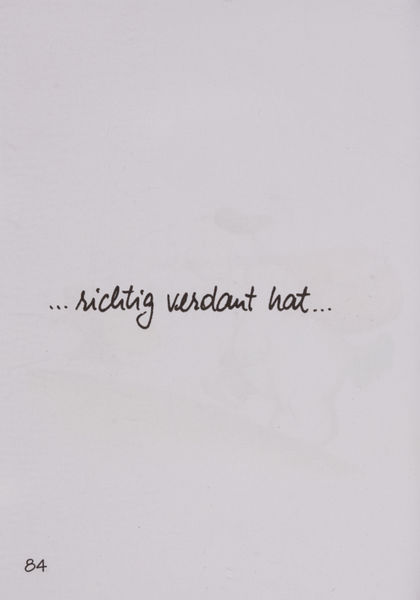 ... richtig verdaut hat...
84